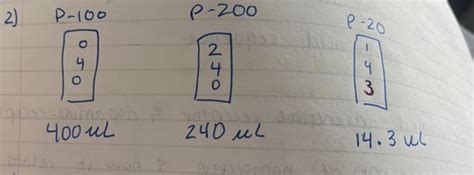 2) P-100 P-200 P-20
0 2 1
4 4 4
0 0 3
400 uL 240 uL 14.3 uL